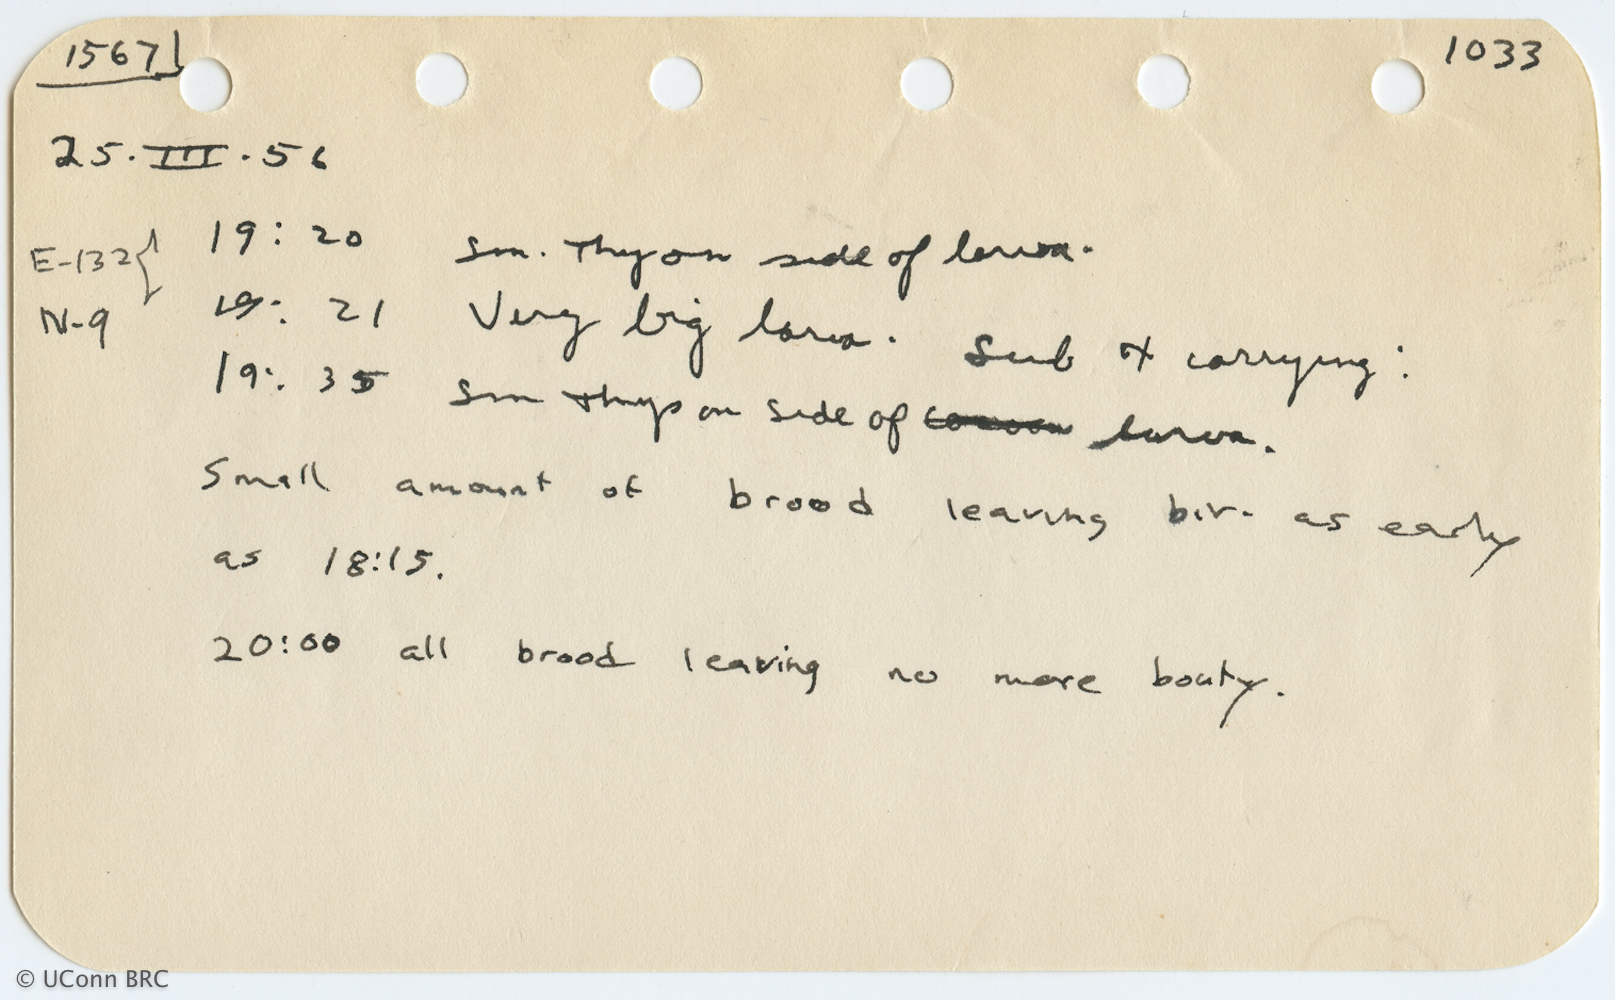 1567 1033
25·III·56
E-132 19:20 Sm. Thy on side of larva.
N-9 19:21 Very big larva. Sub carrying:
19:35 Sm Thys on side of cocoon larva.
Small amount of brood leaving biv. as early
as 18:15.
20:00 all brood leaving no more booty.
© UConn BRC